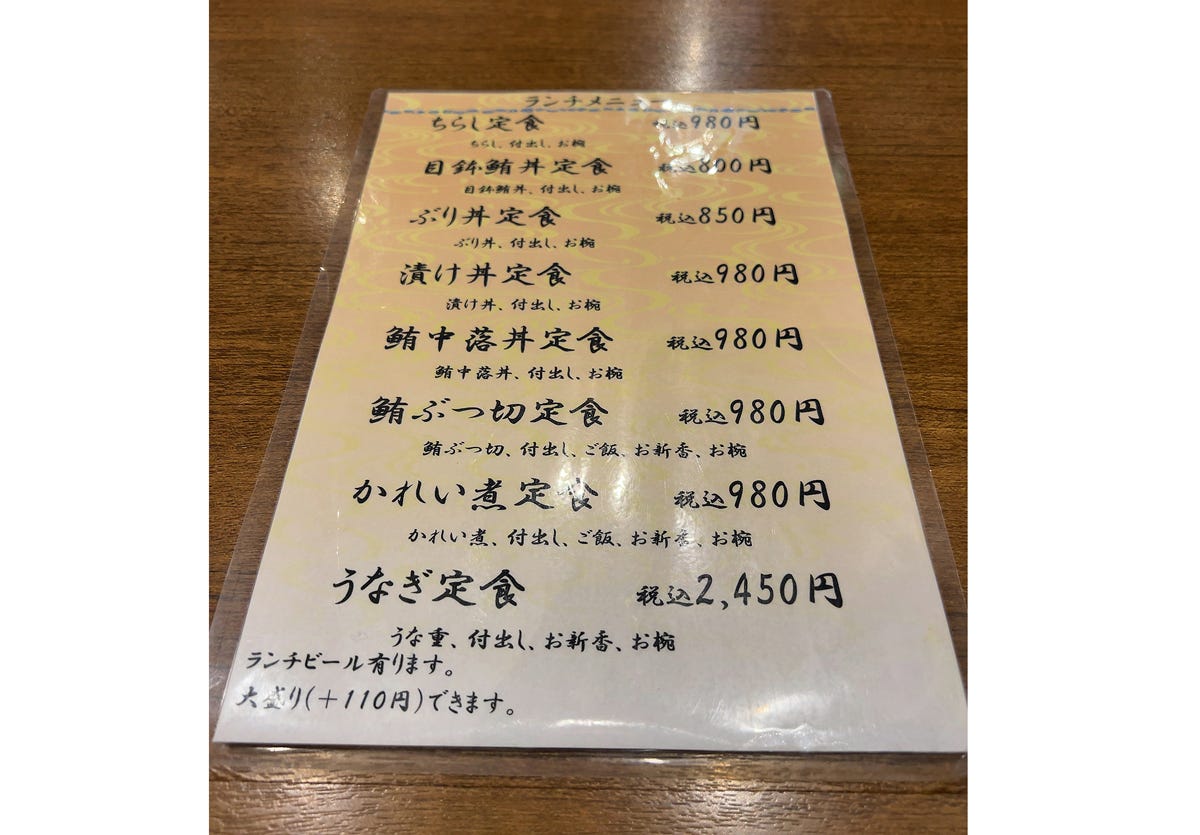 ランチメニュー
ちらし定食 税込980円
ちらし、付出し、お椀
目鉢鮪丼定食 税込800円
目鉢鮪丼、付出し、お椀
ぶり丼定食 税込850円
ぶり丼、付出し、お椀
漬け丼定食 税込980円
漬け丼、付出し、お椀
鮪中落丼定食 税込980円
鮪中落丼、付出し、お椀
鮪ぶつ切定食 税込980円
鮪ぶつ切、付出し、ご飯、お新香、お椀
かれい煮定食 税込980円
かれい煮、付出し、ご飯、お新香、お椀
うなぎ定食 税込2,450円
うな重、付出し、お新香、お椀
ランチビール有ります。
大盛り(+110円)できます。